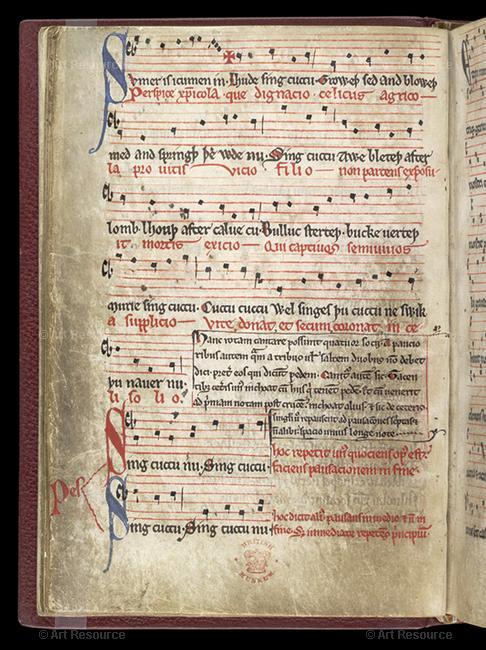 Sumer is icumen in. Lhude sing cuccu. Groweþ sed and bloweþ
Perspice xp̄icola. que dignacio. celicus agrico
med and springþ þe wde nu. Sing cuccu Awe bleteþ after
la pro uitis vicio filio non parcens exposu
lomb. lhouþ after calue cu. Bulluc sterteþ. bucke uerteþ
it mortis exicio Qui captiuos semiuiuos
murie sing cuccu. Cuccu cuccu Wel singes þu cuccu ne swik
a supplicio Vite donat et secum coronat in ce
þu nauer nu.
li solio
Hanc rotam cantare possunt quatuor socii. A paucio
ribus autem quam a tribus uel saltem duobus non debet
dici preter eos qui dicunt pedem. Canitur autem sic. Tacen
tibus ceteris unus inchoat cum hiis qui tenent pedem. Et cum uenerit
ad primam notam post crucem inchoat alius. et sic de ceteris
singuli uero repausent ad pausaciones scriptas et
non alibi spacio unius longe note
Sing cuccu nu. Sing cuccu.
hoc repetit unus quociens opus est
faciens pausacionem in fine.
Pes
Sing cuccu. Sing cuccu nu
hoc dicit alius pausans in medio et non in
fine. Set immediate repetens principium
MUSEUM
© Art Resource
© Art Resource